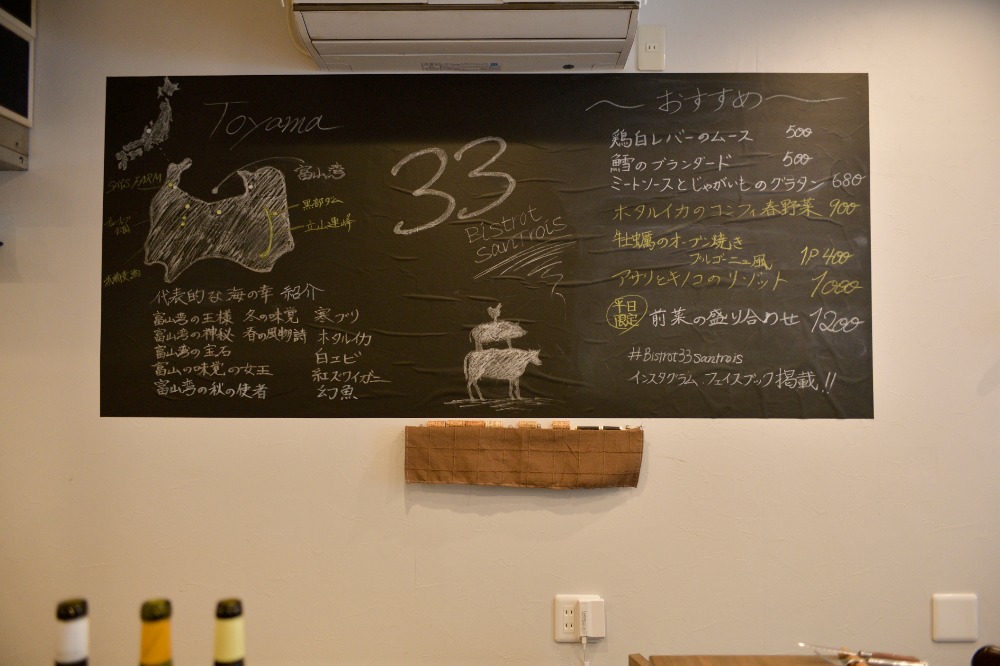 Toyama
富山湾
SAYS FARM
黒部ダム
立山連峰
代表的な海の幸 紹介
富山湾の王様 冬の味覚 寒ブリ
富山湾の神秘 春の風物詩 ホタルイカ
富山湾の宝石 白エビ
富山の味覚の女王 紅ズワイガニ
富山湾の秋の使者 幻魚
33
Bistrot
santrois
おすすめ
鶏白レバーのムース 500
鱈のブランダード 500
ミートソースとじゃがいものグラタン 680
ホタルイカのコンフィ春野菜 900
牡蠣のオーブン焼き
ブルゴーニュ風 1P 400
アサリとキノコのリゾット 1000
平日
限定
前菜の盛り合わせ 1200
#Bistrot33santrois
インスタグラム.フェイスブック掲載!!